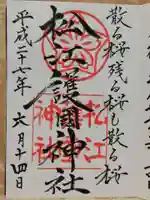 散る桜残る桜も散る桜
松江護國神社
平成二十七年 六月十四日
松江
神社